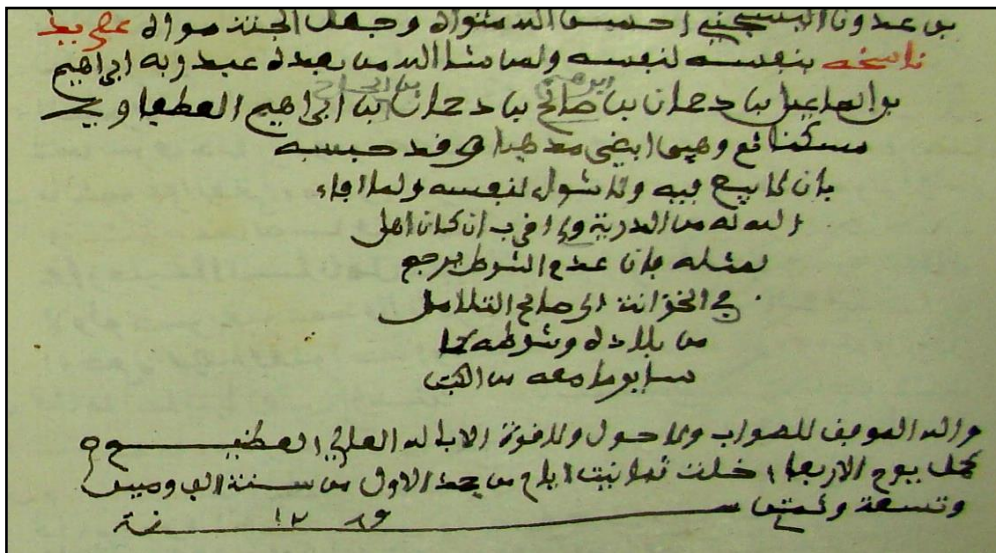 بن عدون اليسجني احسن الله مثواه وجعل الجنة مواه على يد
ناسخه بنفسه لنفسه ولمن شا الله من بعده عبد ربه ابراهيم
ابراهيم بن الحاج
بن اسماعيل بن دحمان بن صالح بن دحمان بن ابراهيم العطفاوي
مسكنا وهبيا ابضي مذهبا وقد حبسه
بان لا يبيع فيه ولا لنفسه ولما
الله له من الذرية والاقرب ان كان اهل
لمثله فان عدم الشرط يرجع
في الخزانة الى صالح
من بلاده وشرطه كما
ساير ما معه من الكتب
والله الموفق للصواب ولا حول ولا قوة الا بالله العلي العظيم
كمل يوم الاربعاء خلت ثمانيت ايام من جمد الاول من سنة الف وميتين
وتسعة وثمنين سنة